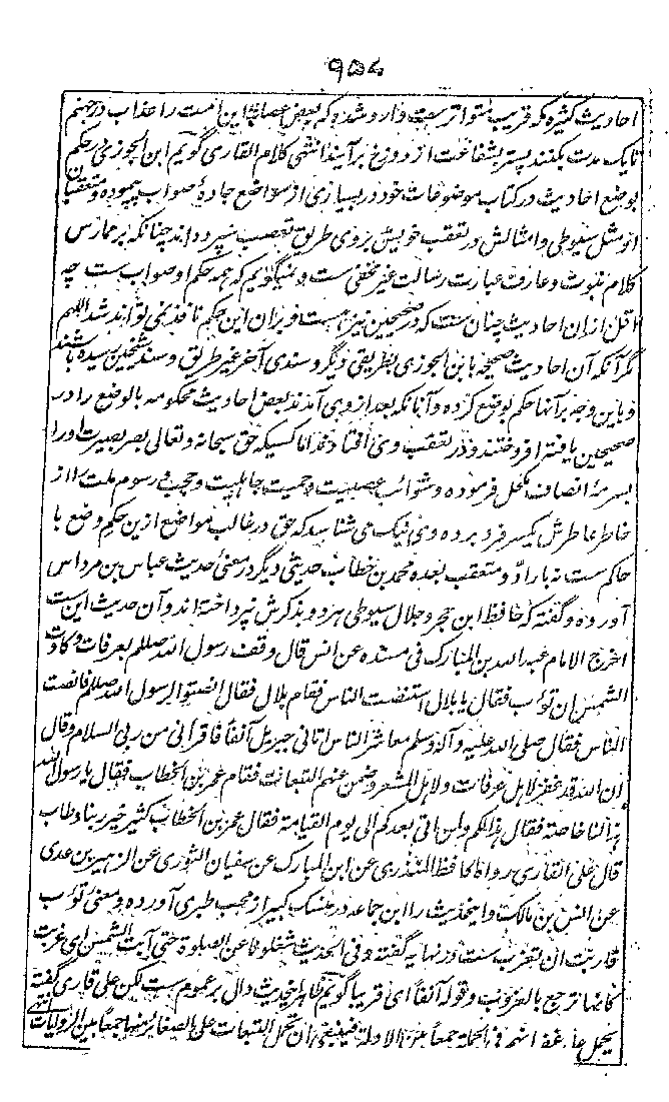 ۹۵۴
احادیث کثیره که قریب بتواتر ست وارد شده که بعض عصاة این امت را عذاب در جهنم
تا یک مدت بکنند پستر بشفاعت از دوزخ برآیند انتهی کلام القاری گویم ابن الجوزی در حکم
بوضع احادیث در کتاب موضوعات خود در بسیاری از مواضع جادهٔ صواب پیموده و متعقبان
او مثل سیوطی و امثالش در تعقب خویش بروی طریق تعصب سپرده اند چنانکه بر ممارس
کلام نبوت و عارف عبارت رسالت غیر مخفی ست و نمیگویم که همه حکم او صواب ست چه
اقل ازان احادیث چنان ست که در صحیحین نیز هست و بران این حکم نافذ نمی تواند شد اللهم
مگر آنکه آن احادیث صحیحه با بن الجوزی بطریقی دیگر و سندی آخر غیر طریق و سند شیخین رسیده باشند
و باین وجه بر آنها حکم بوضع کرده و آنانکه بعد از وی آمدند بعض احادیث محکومه بالوضع را در
صحیحین یافتند افروختند و در تعقب وی افتادند اما کسیکه حق سبحانه و تعالی بصر بصیرت اورا
بسرمهٔ انصاف مکحل فرموده و شوائب عصبیت و حمیت جاهلیت و رسوم ملت را از
خاطر عاطرش یکسر فرو برده وی نیک می شناسد که حق در غالب مواضع ازین حکم وضع با
حاکم ست نه با راد و متعقب بعده محمد بن خطاب حدیثی دیگر در معنی حدیث عباس بن مرداس
آورده و گفته که حافظ ابن حجر و جلال سیوطی هر دو بذکرش نپرداخته اند و آن حدیث این ست
اخرج الامام عبد الله بن المبارک فی مسنده عن انس قال وقف رسول الله صللم بعرفات وکادت
الشمس ان تؤب فقال یا بلال استنصت الناس فقام بلال فقال انصتوا لرسول الله صللم فانصت
الناس فقال صلی الله علیه و آله وسلم معاشر الناس اتانی جبریل آنفاً فاقرأنی من ربی السلام وقال
ان الله قد غفر لاهل عرفات ولاهل المشعر وضمن عنهم التبعات فقام عمر بن الخطاب فقال یا رسول الله
هذا لنا خاصة فقال هذا لکم ولمن اتی بعدکم الی یوم القیامة فقال عمر بن الخطاب کثر خیر ربنا وطاب
قال علی القاری رواه الحافظ المنذری عن ابن المبارک عن سفیان الثوری عن الزبیر بن عدی
عن انس بن مالک و اینحدیث را ابن جماعه در منسک کبیر از محب طبری آورده و معنی تؤب
قاربت ان تغرب ست و در نهایه گفته و فی الحدیث شغلونا عن الصلوة حتی آبت الشمس ای غربت
کانها ترجع بالغروب وقوله آنفاً ای قریبا گویم ظاهر اینحدیث دال بر عموم ست لکن علی قاری گفته
یحمل علی غفرانهم فی الجملة جمعاً بین الادلة فینبغی ان تحمل التبعات علی الصغائر منها جمعاً بین الروایات انتهی